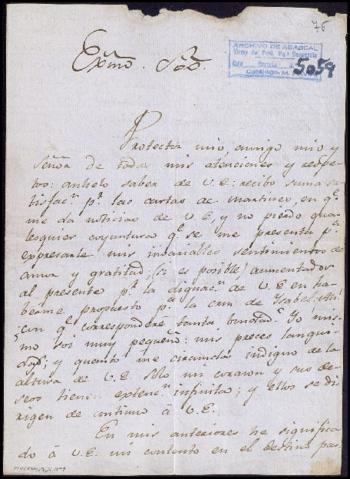 76
Exmo. Sor.
ARCHIVO DE ABASCAL
5059
Protector mio, amigo mio y
Señor de todas mis atenciones y respe-
tos: anhelo saber de V.E: recibo suma sa-
tisfacn. pr. las cartas de Martinez, en qe.
me da noticias de V.E, y no pierdo qua-
lesquier coyuntura qe. se me presenta pa.
expresarle mis invariables sentimientos de
amor y gratitud, (si es posible) aumentados
al presente pr. la dignacn. de V.E en ha-
berme propuesto pa. la cruz de Isabel.
con qe. corresponderé tanta bondad. Yo mis-
mo soi muy pequeño: mis preces
y quanto me circunda indigno de la
altura de V.E. Solo mi corazon y sus de-
seos tienen extensn. infinita; y ellos se di-
rigen de continuo á V.E.
En mis anteriores he significa-
do á V.E. mi contento en el destino pas